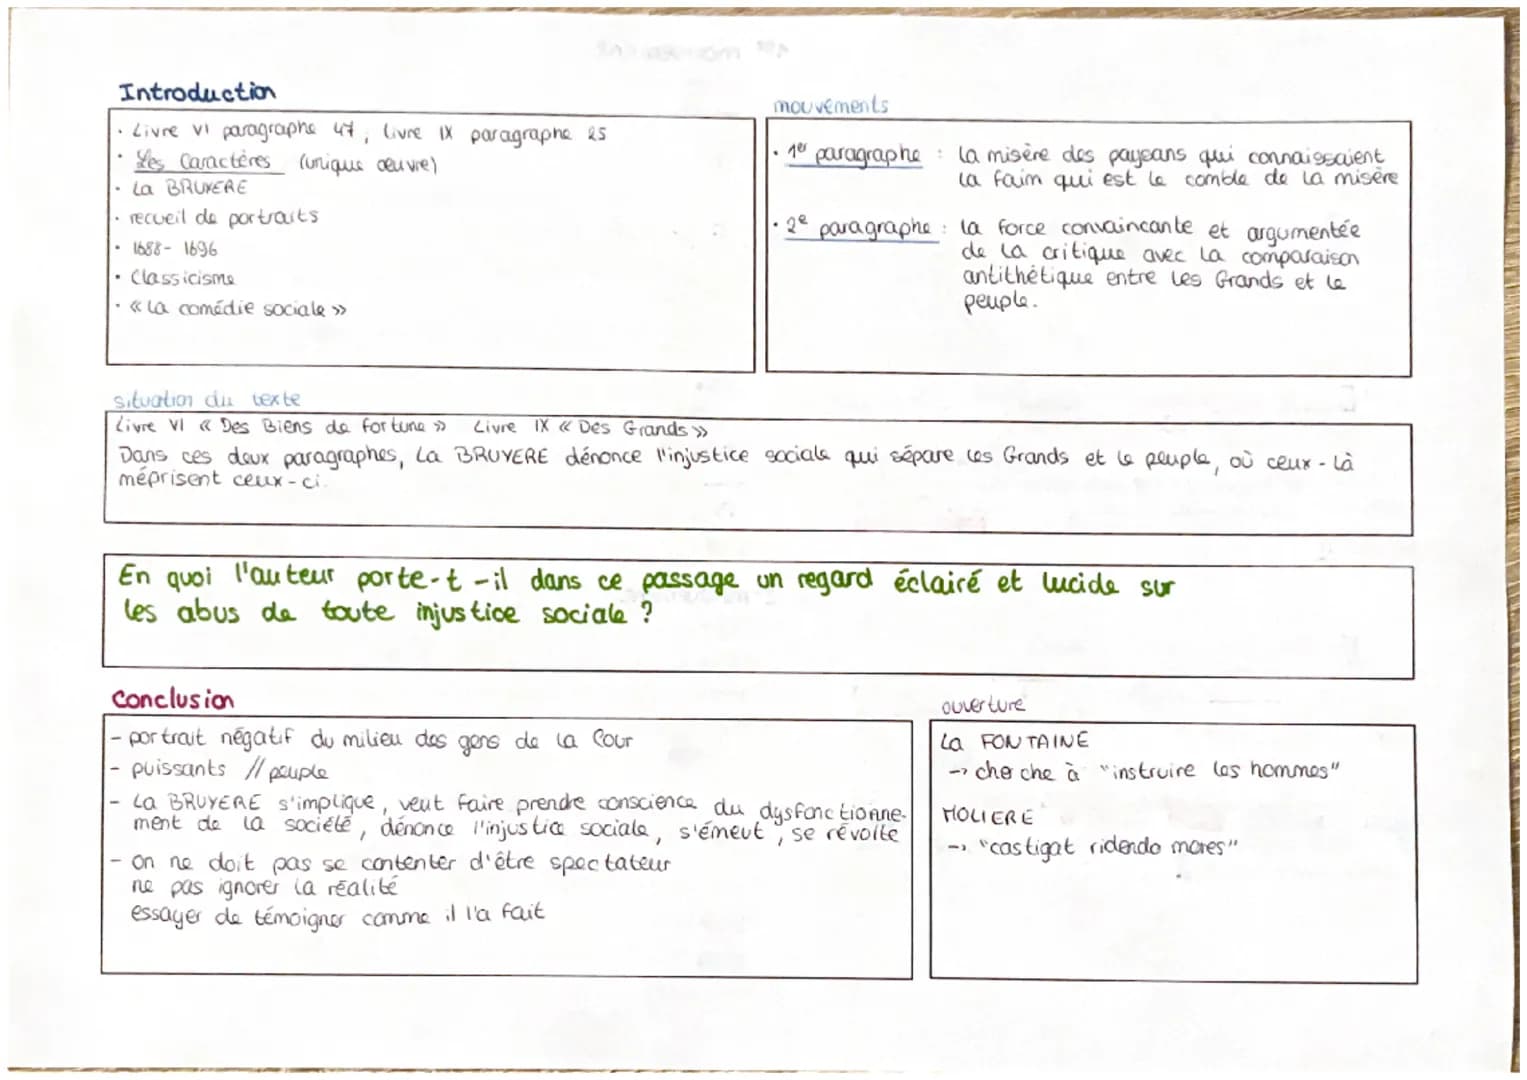 Introduction
· Livre VI paragraphe 47, livre IX paragraphe 25
· Les Caractères (unique œuvre)
· La BRUYERE
· recueil de portraits
· 1688 - 1696
· Classicisme
· « La comédie sociale »
mouvements
· 1er paragraphe : la misère des paysans qui connaissaient
la faim qui est le comble de la misère
· 2e paragraphe : la force convaincante et argumentée
de la critique avec la comparaison
antithétique entre les Grands et le
peuple.
situation du texte
Livre VI « Des Biens de fortune » Livre IX « Des Grands »
Dans ces deux paragraphes, La BRUYERE dénonce l'injustice sociale qui sépare les Grands et le peuple, où ceux-là
méprisent ceux-ci.
En quoi l'auteur porte-t-il dans ce passage un regard éclairé et lucide sur
les abus de toute injustice sociale ?
Conclusion
- portrait négatif du milieu des gens de la Cour
- puissants // peuple
- La BRUYERE s'implique, veut faire prendre conscience du dysfonctionne-
ment de la société, dénonce l'injustice sociale, s'émeut, se révolte
- on ne doit pas se contenter d'être spectateur
ne pas ignorer la réalité
essayer de témoigner comme il l'a fait
ouverture
La FONTAINE
-> cherche à "instruire les hommes"
MOLIERE
-> "castigat ridendo mores"